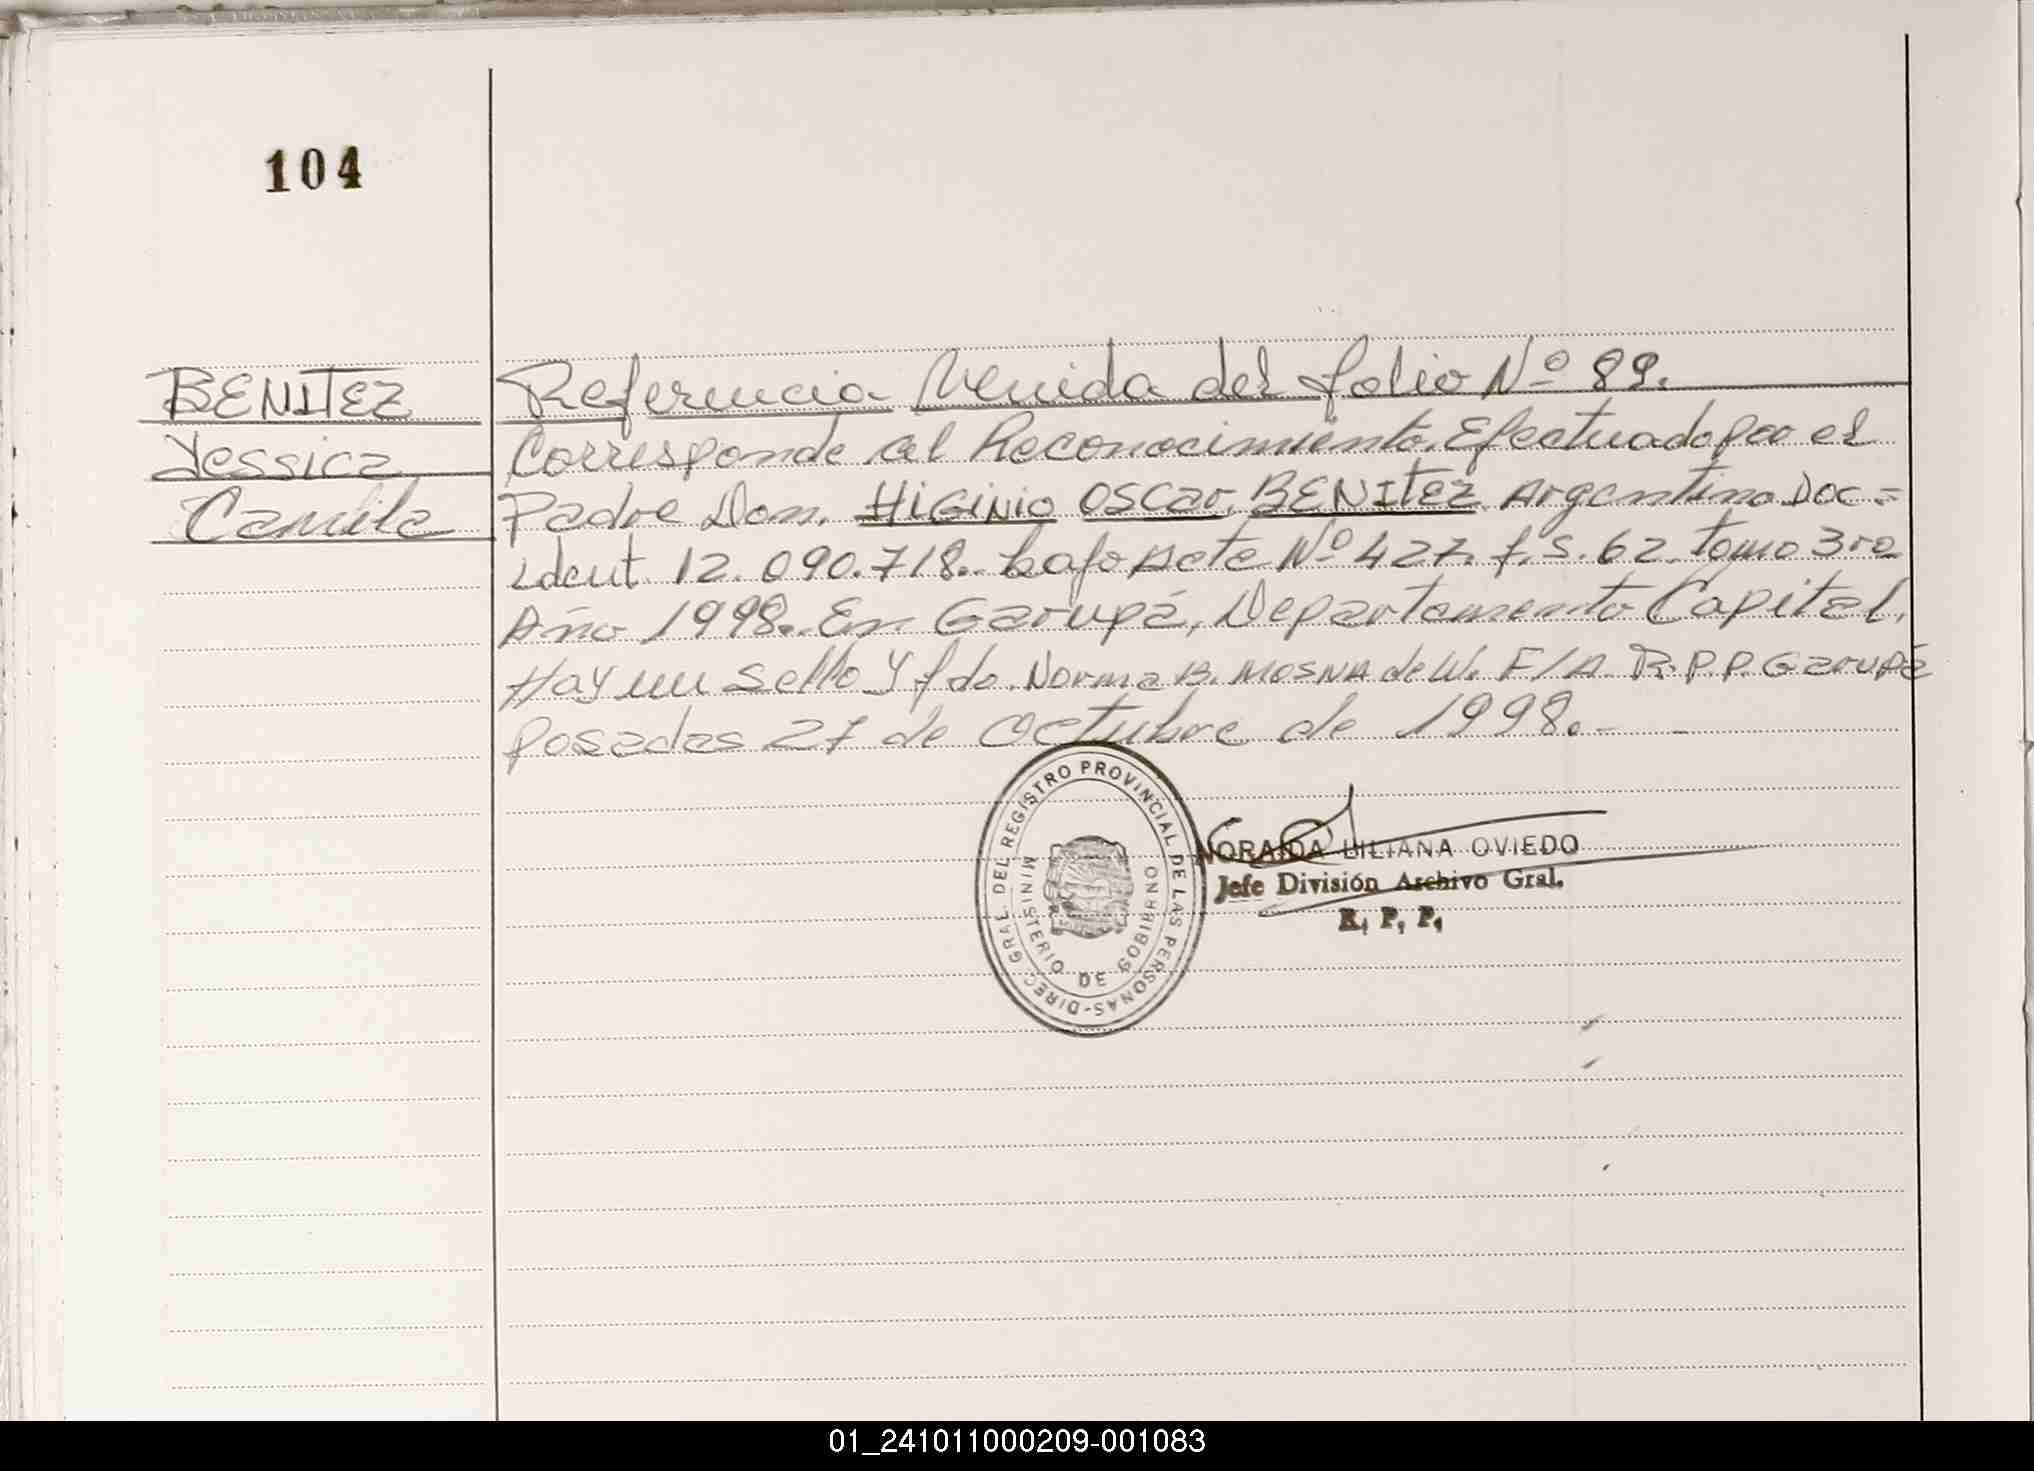 104
BENITEZ
Jessica
Camila
Referencia Venida del folio Nº 89.
Corresponde al Reconocimiento. Efectuado por el
Padre Don. HIGINIO OSCAR. BENITEZ Argentino Doc.=
Ident. 12.090.718. bajo Acta Nº 427. f.s. 62 tomo 3ro
Año 1998. En Garupá, Departamento Capital.
Hay un Sello y fdo. Norma B. MOSNA de W. E/A. R.P.P. Garupá
Posadas 27 de Octubre de 1998.-
DIREC. GRAL. DEL REGISTRO PROVINCIAL DE LAS PERSONAS-
MINISTERIO DE GOBIERNO
NORAIDA LILIANA OVIEDO
Jefe División Archivo Gral.
R. P. P.
01_241011000209-001083